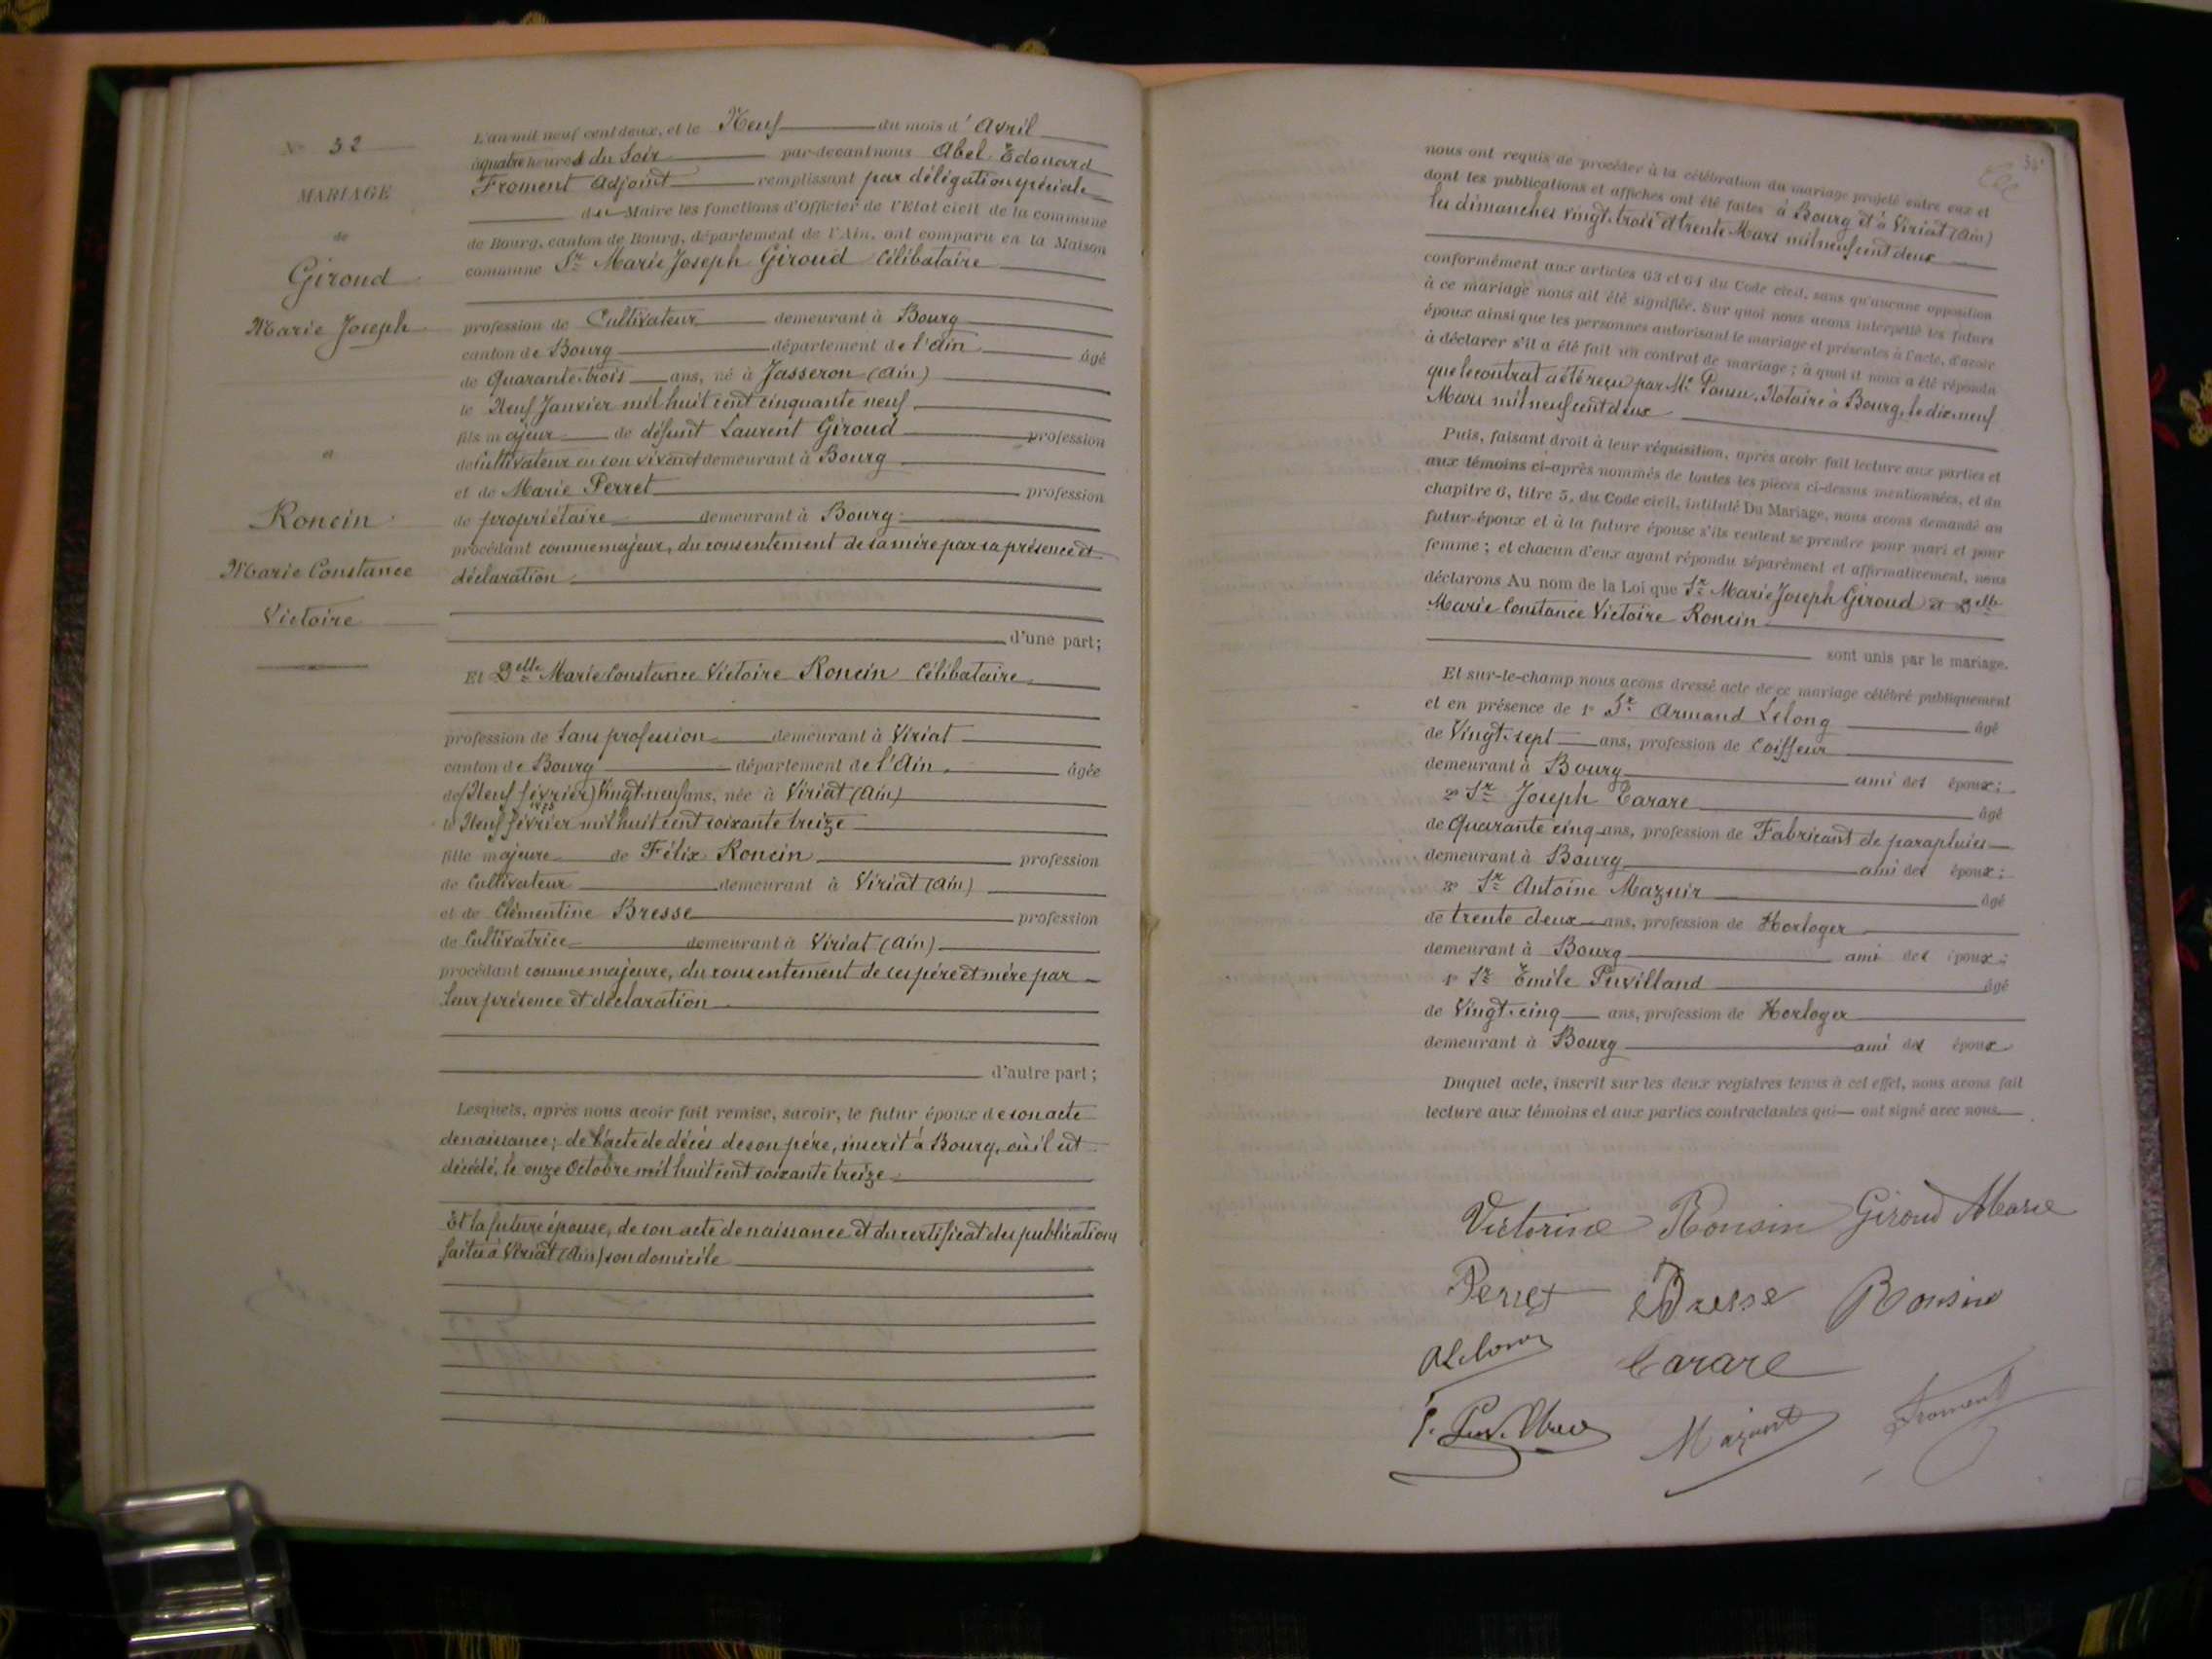 N° 32
MARIAGE
de
Giroud
Marie Joseph
et
Roncin
Marie Constance
Victoire
L'an mil neuf cent deux, et le Neuf du mois d'Avril
à quatre heures du Soir par-devant nous Abel Edouard
Froment Adjoint remplissant par délégation spéciale
du Maire les fonctions d'Officier de l'Etat civil de la commune
de Bourg, canton de Bourg, département de l'Ain, ont comparu en la Maison
commune Sr Marie Joseph Giroud Célibataire
profession de Cultivateur demeurant à Bourg
canton de Bourg département de l'Ain âgé
de Quarante-trois ans, né à Jasseron (Ain)
le Neuf Janvier mil huit cent cinquante neuf
fils majeur de défunt Laurent Giroud profession
de Cultivateur en son vivant demeurant à Bourg
et de Marie Perret profession
de propriétaire demeurant à Bourg
procédant comme majeur, du consentement de sa mère par sa présence et
déclaration
d'une part;
Et Delle Marie Constance Victoire Roncin Célibataire
profession de Sans profession demeurant à Viriat
canton de Bourg département de l'Ain âgée
de (Neuf février) Vingt-neuf ans, née à Viriat (Ain)
1873
le Neuf février mil huit cent soixante treize
fille majeure de Félix Roncin profession
de Cultivateur demeurant à Viriat (Ain)
et de Clémentine Bresse profession
de Cultivatrice demeurant à Viriat (Ain)
procédant comme majeure, du consentement de ses père et mère par
leur présence et déclaration
d'autre part;
Lesquels, après nous avoir fait remise, savoir, le futur époux de son acte
de naissance; de l'acte de décès de son père, inscrit à Bourg, où il est
décédé, le onze Octobre mil huit cent soixante treize
Et la future épouse, de son acte de naissance et du certificat des publications
faites à Viriat (Ain) son domicile
nous ont requis de procéder à la célébration du mariage projeté entre eux et
dont les publications et affiches ont été faites à Bourg et à Viriat (Ain)
les dimanches vingt-trois et trente Mars mil neuf cent deux
conformément aux articles 63 et 64 du Code civil, sans qu'aucune opposition
à ce mariage nous ait été signifiée. Sur quoi nous avons interpellé les futurs
époux ainsi que les personnes autorisant le mariage et présentes à l'acte, d'avoir
à déclarer s'il a été fait un contrat de mariage; à quoi il nous a été répondu
que le contrat a été reçu par Me Notaire à Bourg, le dix-neuf
Mars mil neuf cent deux
Puis, faisant droit à leur réquisition, après avoir fait lecture aux parties et
aux témoins ci-après nommés de toutes les pièces ci-dessus mentionnées, et du
chapitre 6, titre 5, du Code civil, intitulé Du Mariage, nous avons demandé au
futur époux et à la future épouse s'ils veulent se prendre pour mari et pour
femme; et chacun d'eux ayant répondu séparément et affirmativement, nous
déclarons Au nom de la Loi que Sr Marie Joseph Giroud et Delle
Marie Constance Victoire Roncin
sont unis par le mariage.
Et sur-le-champ nous avons dressé acte de ce mariage célébré publiquement
et en présence de 1° Sr Armand Lelong âgé
de Vingt-sept ans, profession de Coiffeur
demeurant à Bourg ami des époux;
2° Sr Joseph Tarare âgé
de Quarante cinq ans, profession de Fabricant de parapluies
demeurant à Bourg ami des époux;
3° Sr Antoine Maznir âgé
de trente deux ans, profession de Horloger
demeurant à Bourg ami des époux;
4° Sr Emile Puvilland âgé
de Vingt-cinq ans, profession de Horloger
demeurant à Bourg ami des époux
Duquel acte, inscrit sur les deux registres tenus à cet effet, nous avons fait
lecture aux témoins et aux parties contractantes qui ont signé avec nous
Victorine Ronsin Giroud Marie
Perret Bresse Ronsin
Tarare
Froment